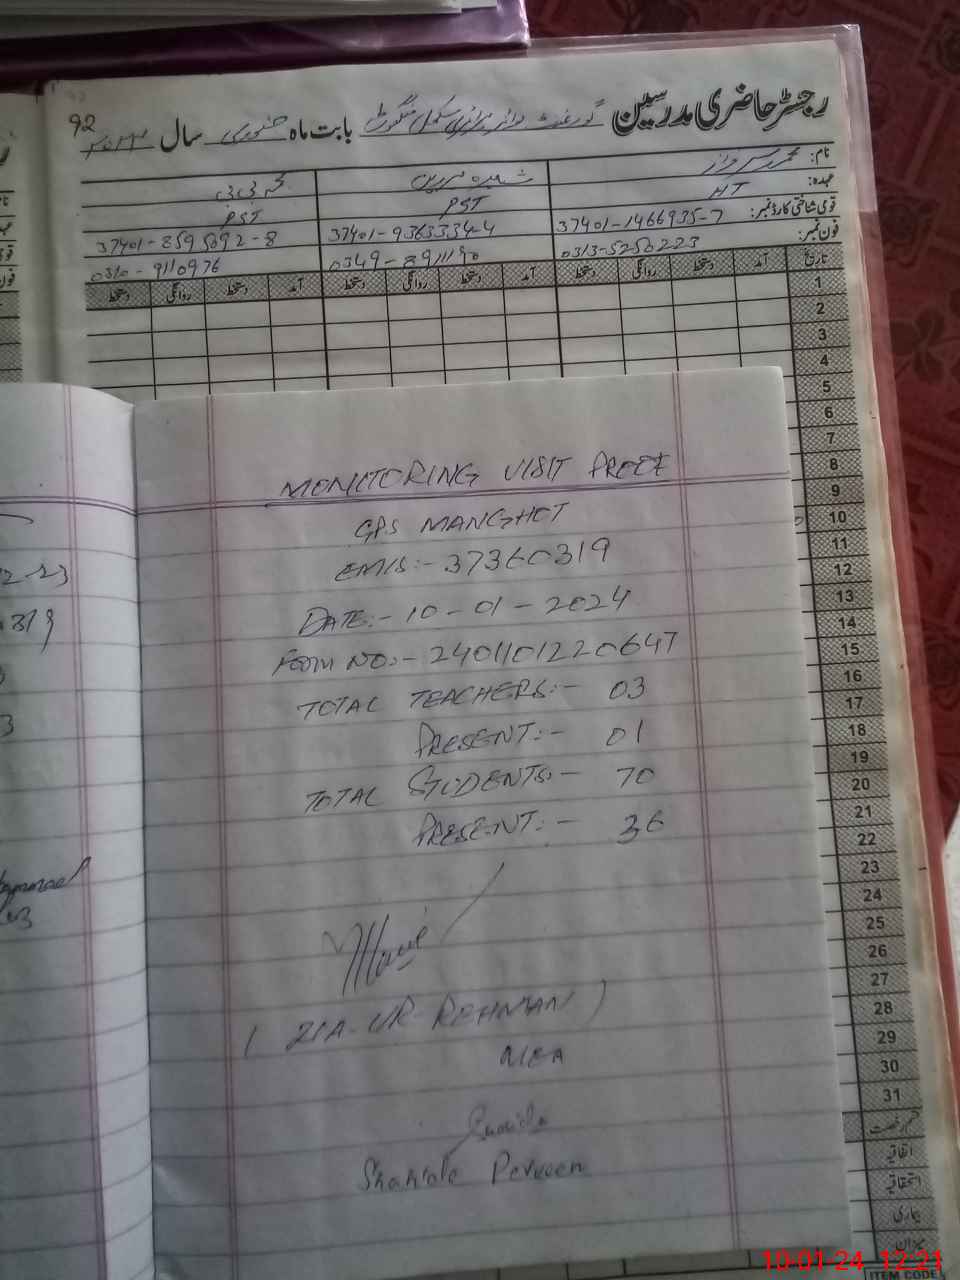 92
رجسٹر حاضری مدرسین گورنمنٹ بوائز پرائمری سکول منگوٹ بابت ماہ جنوری سال
نام:
عہدہ: HT PST PST
قومی شناختی کارڈ نمبر: 37401-1466935-7 37401-9363334-4 37401-8595092-8
فون نمبر: 0313-5250223 0349-8911190 0310-9110976
تاریخ آمد دستخط روانگی دستخط آمد دستخط روانگی دستخط آمد دستخط روانگی دستخط
1
2
3
4
5
6
7
8
9
10
11
12
13
14
15
16
17
18
19
20
21
22
23
24
25
26
27
28
29
30
31
اتفاقیہ
استحقاقیہ
بیماری
میزان
ITEM CODE
MONITORING VISIT PROOF
GPS MANGHOT
EMIS:- 37360319
DATE:- 10-01-2024
FORM NO:- 2401101220647
TOTAL TEACHERS:- 03
PRESENT:- 01
TOTAL STUDENTS:- 70
PRESENT:- 36
( ZIA-UR-REHMAN )
MEA
Shahida Perveen
10-01-24 12:21